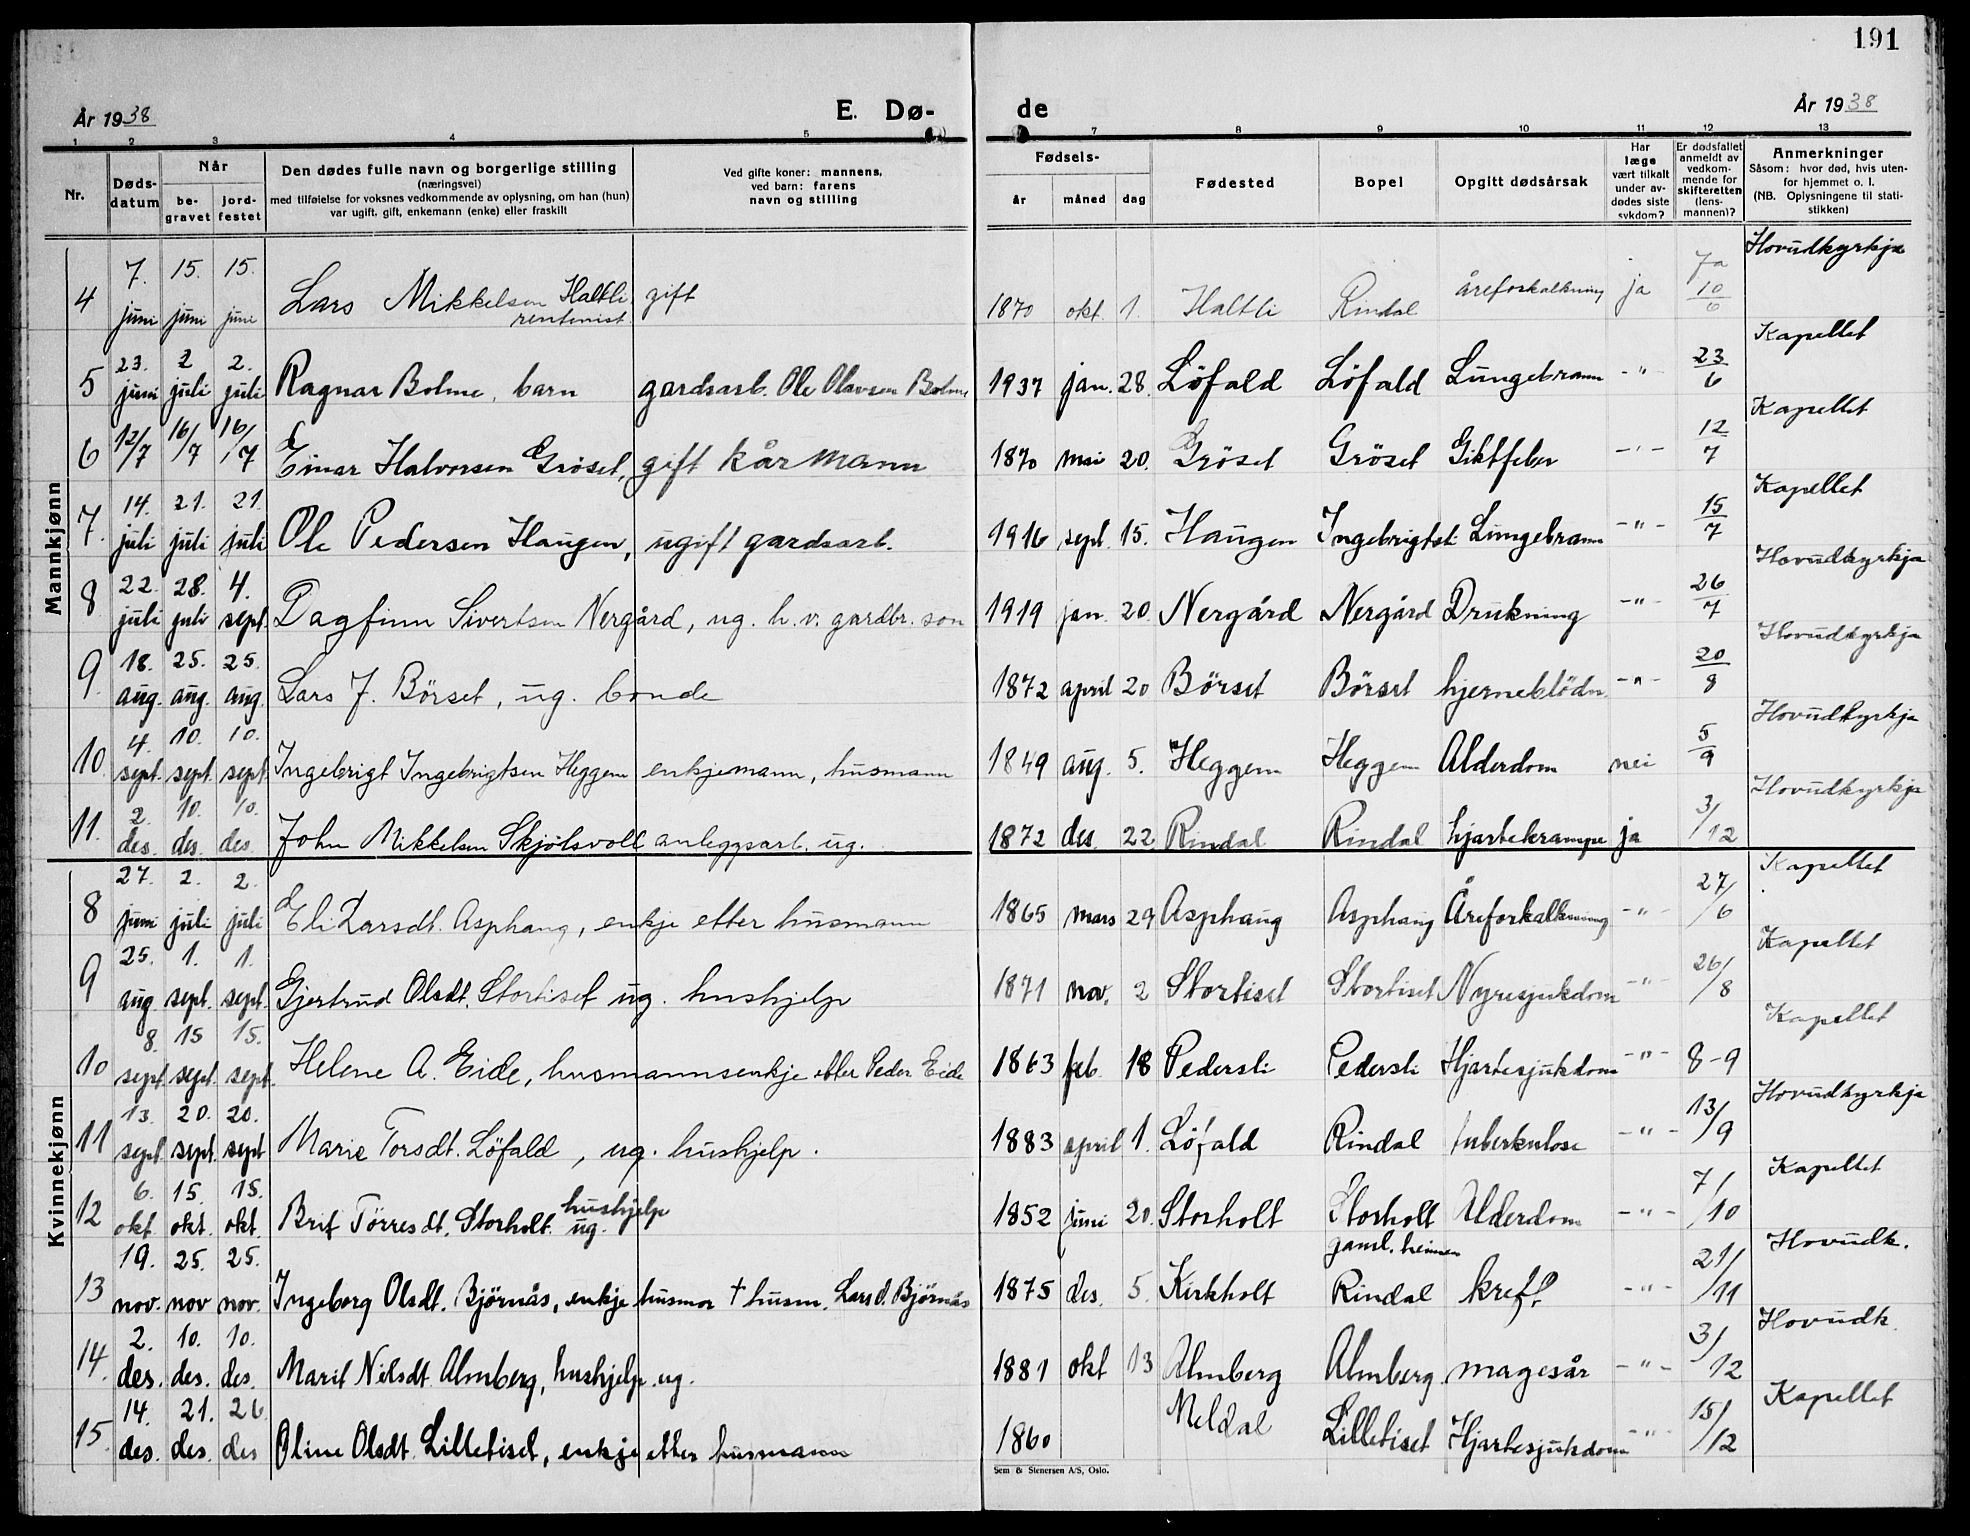 191
År 1938 E. Dø- de År 1938
1 2 3 4 5 7 8 9 10 11 12 13
Nr. Dødsdatum Når begravet jordfestet
Den dødes fulle navn og borgerlige stilling
(næringsvei)
med tilføielse for voksnes vedkommende av oplysning, om han (hun)
var ugift, gift, enkemann (enke) eller fraskilt
Ved gifte koner: mannens,
ved barn: farens
navn og stilling
Fødsels-
år måned dag
Fødested Bopel Opgitt dødsårsak
Har læge vært tilkalt under avdødes siste sykdom?
Er dødsfallet anmeldt av vedkommende for skifteretten (lensmannen)?
Anmerkninger
Såsom: hvor død, hvis utenfor hjemmet o. l.
(NB. Oplysningene til statistikken)
Mannkjønn
4 7. juni 15. juni 15. juni Lars Mikkelsen Haltli, rentenist gift 1870 okt. 1. Haltli Rindal åreforkalkning ja 10/6 Hovudkyrkja
5 23. juni 2 juli 2. juli Ragnar Bolme, barn gardsarb. Ole Olavsen Bolme 1937 jan. 28. Löfald Löfald Lungebrann -"- 23/6 Kapellet
6 12/7 16/7 16/7 Einar Halvorsen Gröset, gift kårmann 1870 mai 20. Gröset Gröset Giktfeber -"- 12/7 Kapellet
7. 14. juli 21. juli 21. juli Ole Pedersen Haugen, ugift gardsarb. 1916 sept. 15. Haugen Ingebrigtsli Lungebrann -"- 15/7 Kapellet
8 22. juli 28. juli 4. sept. Dagfinn Sivertsen Nergård, ug. h. v. gardbr. son 1919 jan. 20. Nergård Nergård Drukning -"- 26/7 Hovudkyrkja
9. 18. aug. 25. aug. 25. aug. Lars J. Börset, ug. bonde 1872 april 20 Börset Börset hjerneblödn. -"- 20/8 Hovudkyrkja
10. 4. sept. 10. sept. 10. sept. Ingebrigt Ingebrigtsen Heggem enkjemann, husmann 1849 aug. 5. Heggem Heggem Alderdom nei 5/9 Hovudkyrkja
11. 2. des. 10. des. 10. des. John Mikkelsen Skjölsvoll anleggsarb. ug. 1872 des. 22 Rindal Rindal hjartekrampe ja 3/12 Hovudkyrkja
Kvinnekjønn
8 27. juni 2. juli 2. juli Eli Larsdt. Asphaug, enkje etter husmann 1865 mars 29 Asphaug Asphaug Åreforkalkning -"- 27/6 Kapellet
9 25. aug. 1. sept. 1. sept. Gjertrud Olsdt. Stortiset ug. hushjelp 1871 nov. 2 Stortiset Stortiset Nyresjukdom -"- 26/8 Kapellet
10 8. sept. 15 sept. 15. sept. Helene A. Eide, husmannsenkje etter Peder Eide 1863 feb. 18 Pedersli Pedersli Hjartesjukdom -"- 8-9 Kapellet
11 13. sept. 20. sept. 20. sept Marie Torsdt. Löfald, ug. hushjelp. 1883 april 1. Löfald Rindal tuberkulose -"- 13/9 Hovudkyrkja
12 6. okt. 15. okt. 15. okt. Brit Törresdt. Storholt. ug. hushjelp 1852 juni 20. Storholt Storholt Alderdom -"- 7/10 Kapellet
13 19. nov. 25. nov 25. nov. Ingeborg Olsdt. Björnås, enkje husmor † husm. Lars O. Björnås 1875 des. 5. Kirkholt gaml. heimen Rindal kreft -"- 21/11 Hovudk.
14. 2. des. 10. des. 10. des. Marit Nilsdt Almberg, hushjelp. ug. 1881 okt 13 Almberg Almberg. magesår -"- 3/12 Hovudk.
15. 14. des. 21. des. 26 des Oline Olsdt. Lilletiset, enkje etter husmann 1860 Meldal Lilletiset Hjartesjukdom -"- 15/12 Kapellet
Sem & Stenersen A/S, Oslo.